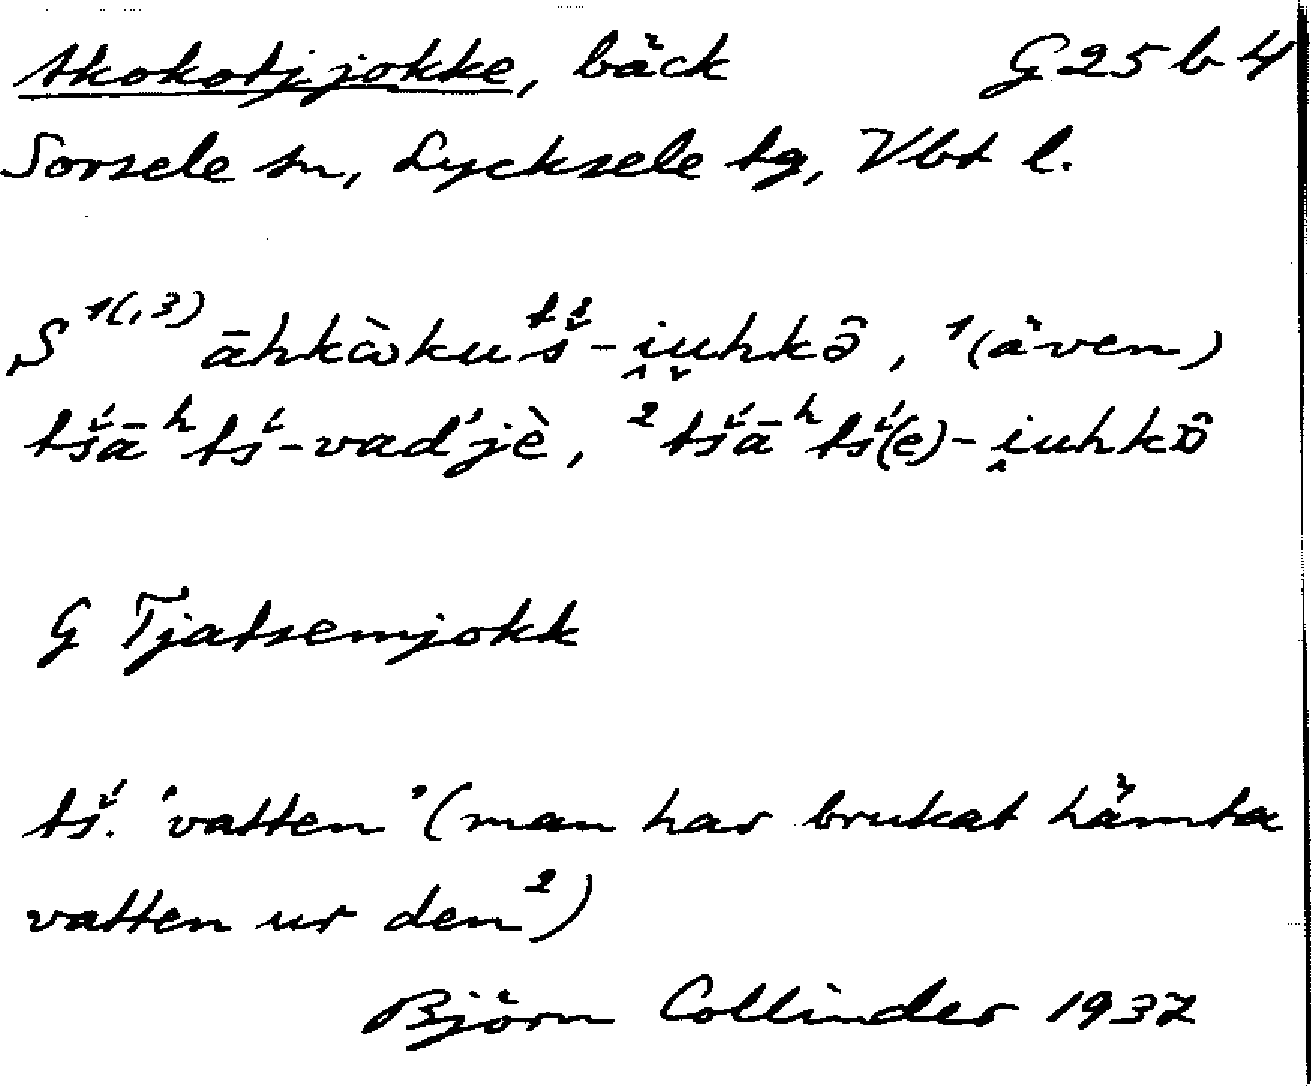 Akokotjjokke, bäck G25b4
Sorsele sn, Lycksele tg, Vbt l.
S 1(,3) āhkὰkutš́-i̭u̬hkɔ̂, 1(även)
tš́āhtš́-vad'jè, 2tš́āhtš́(e)-i̭uhkɔ̂
G Tjatsemjokk
tš́. 'vatten' (man har brukat hämta
vatten ur den2)
Björn Collinder 1937